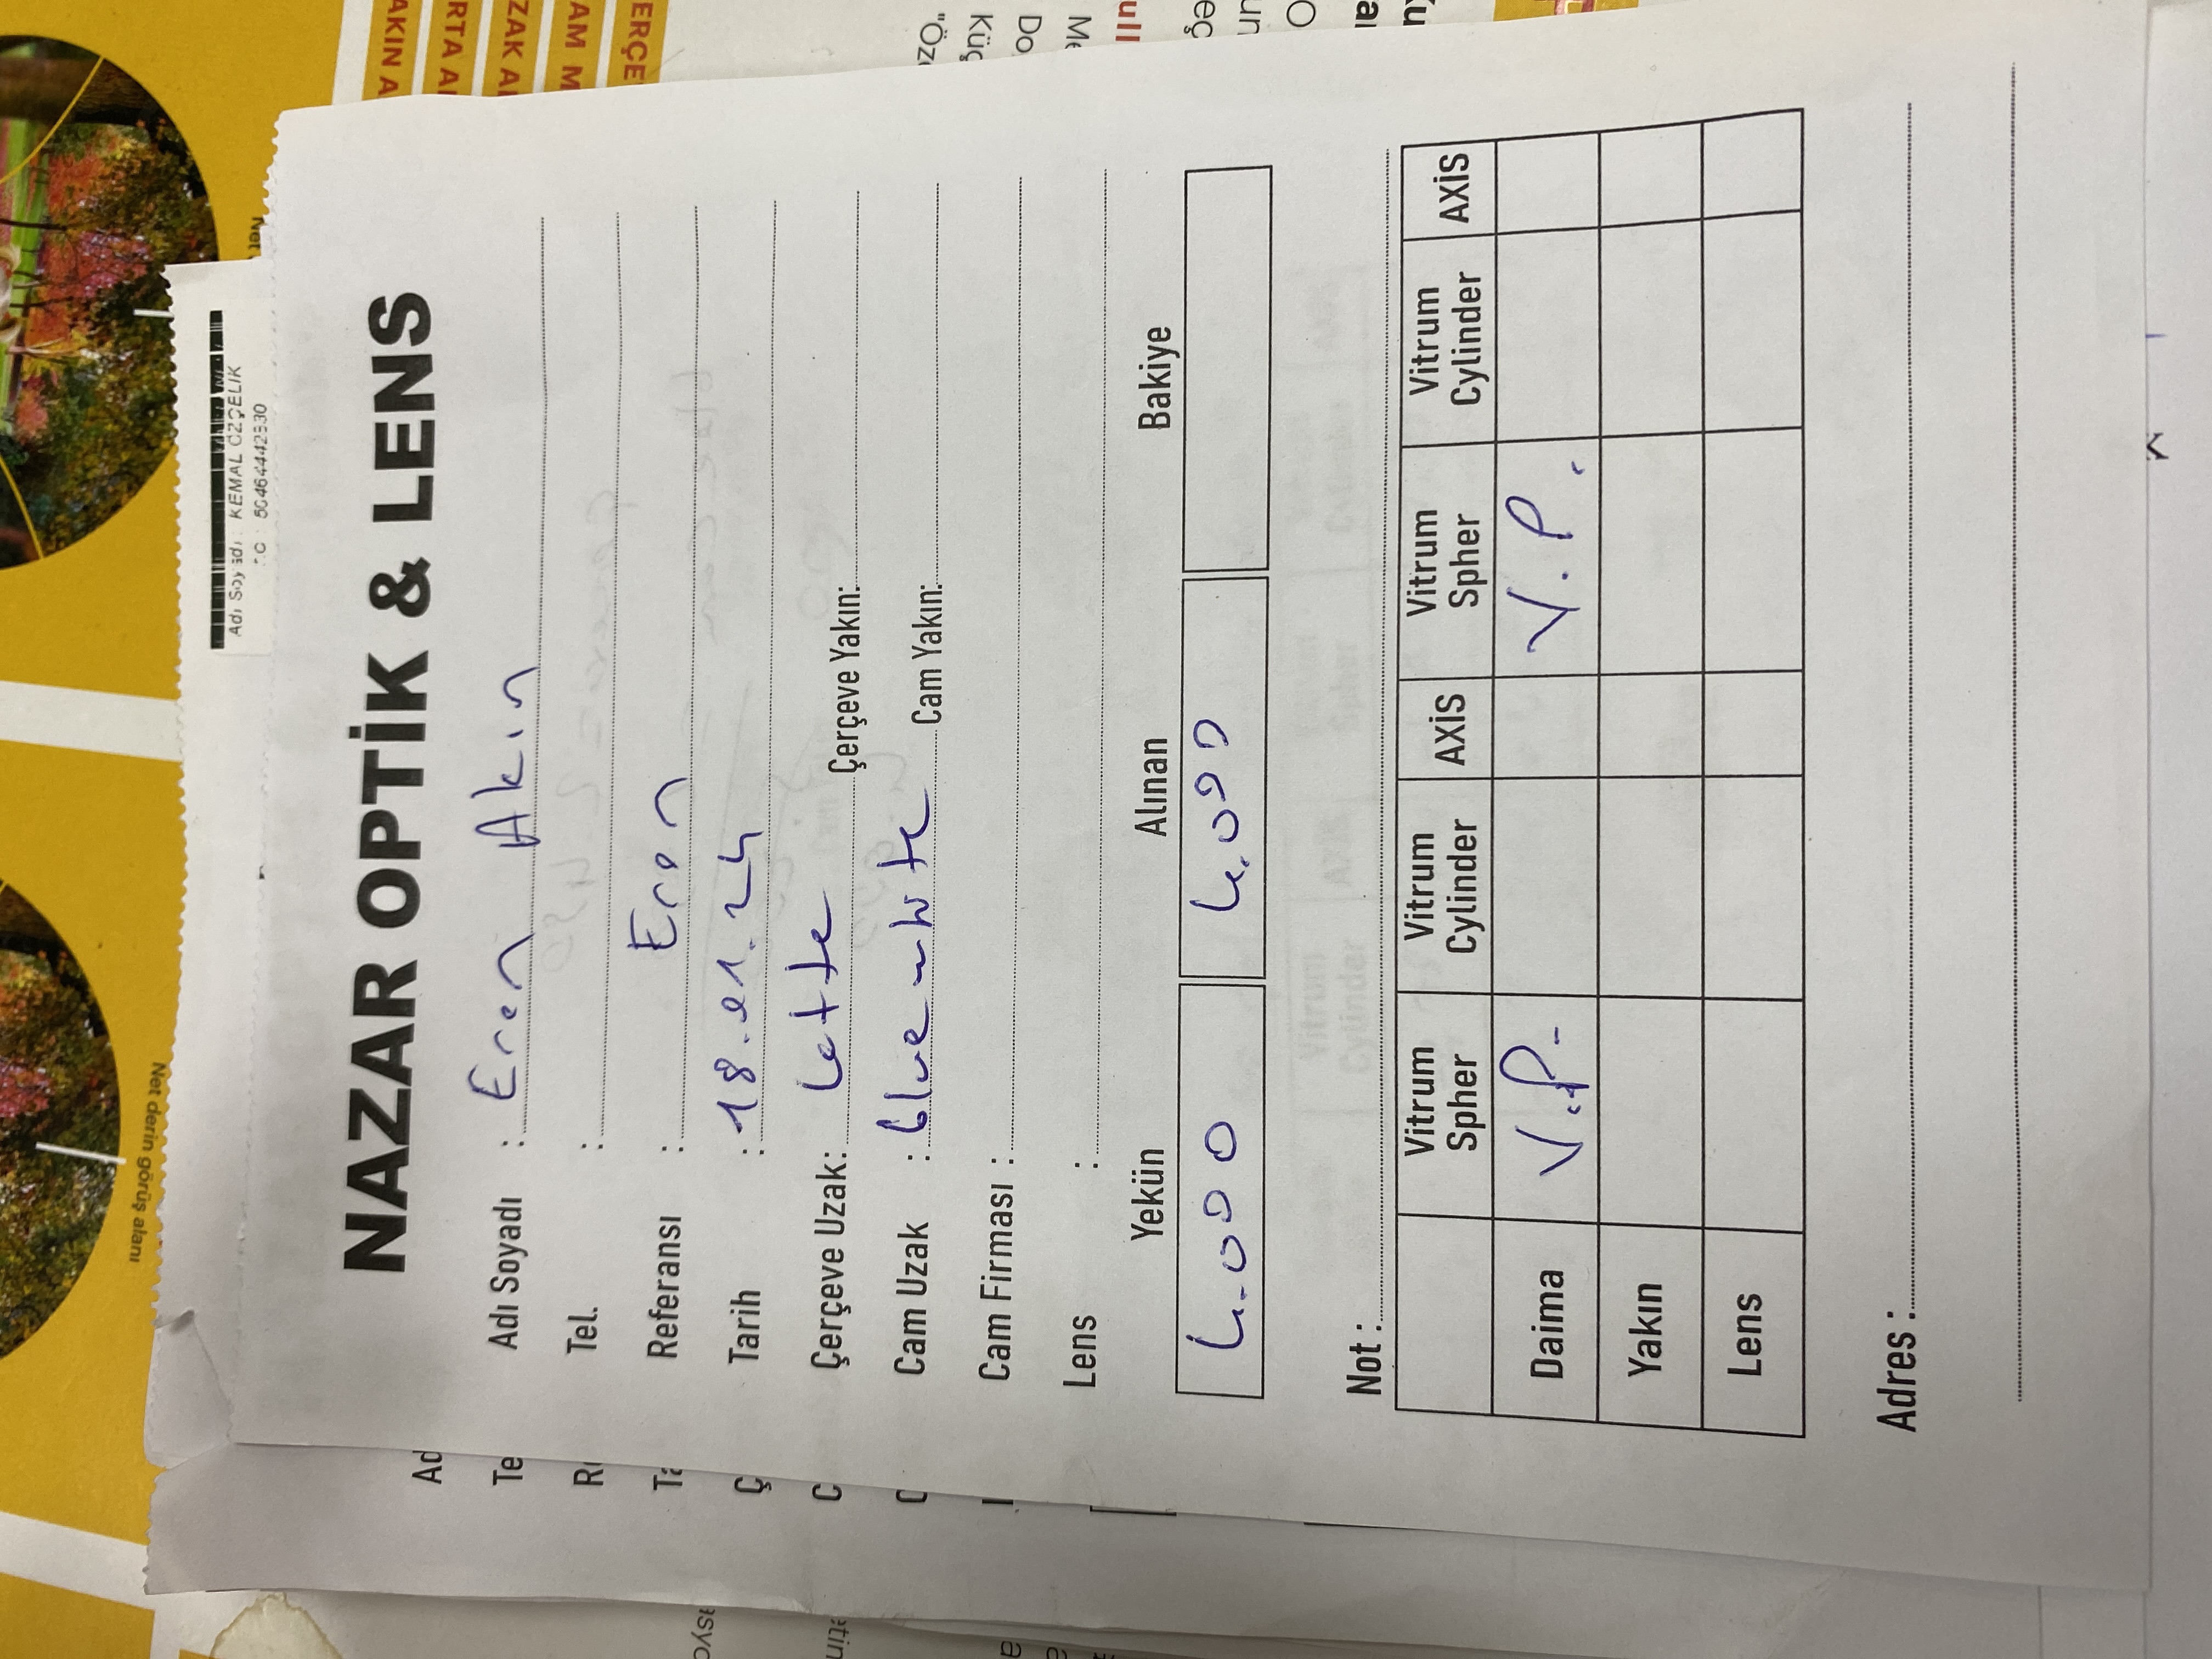 Net derin görüş alanı
Adı Soyadı : KEMAL ÖZÇELİK
NAZAR OPTİK & LENS
Adı Soyadı : Eren Akın
Tel. :
Referansı : Eren
Tarih : 18.01.24
Çerçeve Uzak: Latte Çerçeve Yakın:
Cam Uzak : blue white Cam Yakın:
Cam Firması :
Lens :
Yekün Alınan Bakiye
4.000 4.000
Not :
Vitrum Spher Vitrum Cylinder AXİS Vitrum Spher Vitrum Cylinder AXİS
Daima V.P. V.P.
Yakın
Lens
Adres :